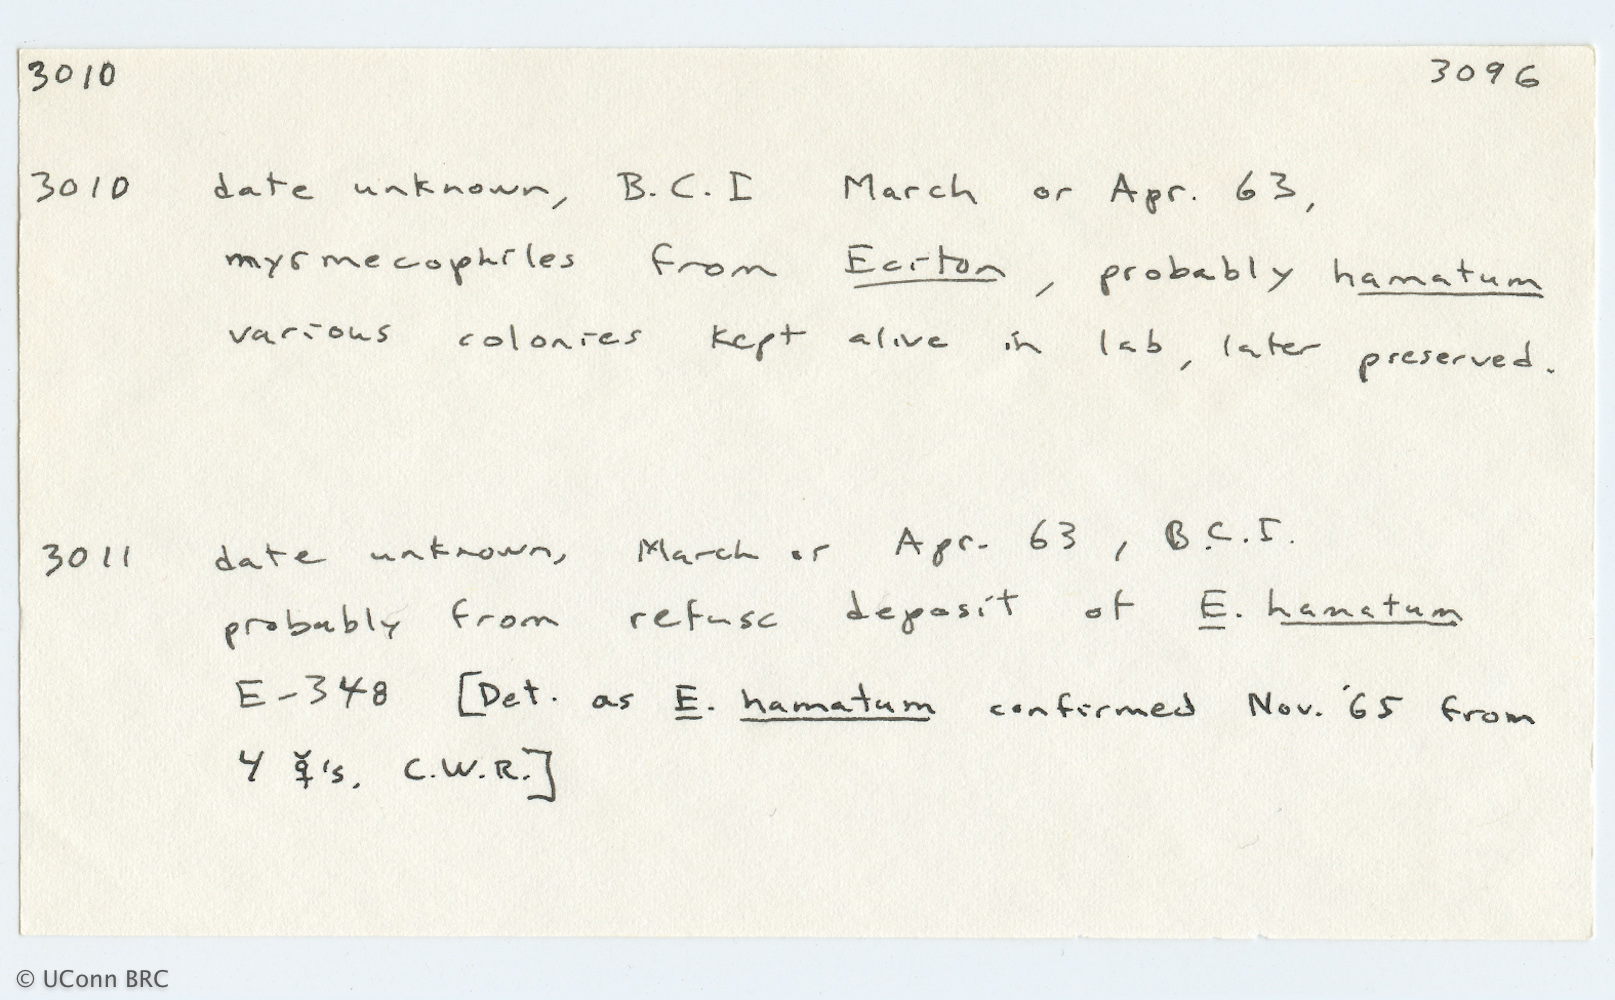 3010 3096
3010 date unknown, B.C.I March or Apr. 63,
myrmecophiles from Eciton, probably hamatum
various colonies kept alive in lab, later preserved.
3011 date unknown, March or Apr. 63, B.C.I.
probably from refuse deposit of E. hamatum
E-348 [Det. as E. hamatum confirmed Nov. '65 from
4 ☿'s. C.W.R.]
© UConn BRC